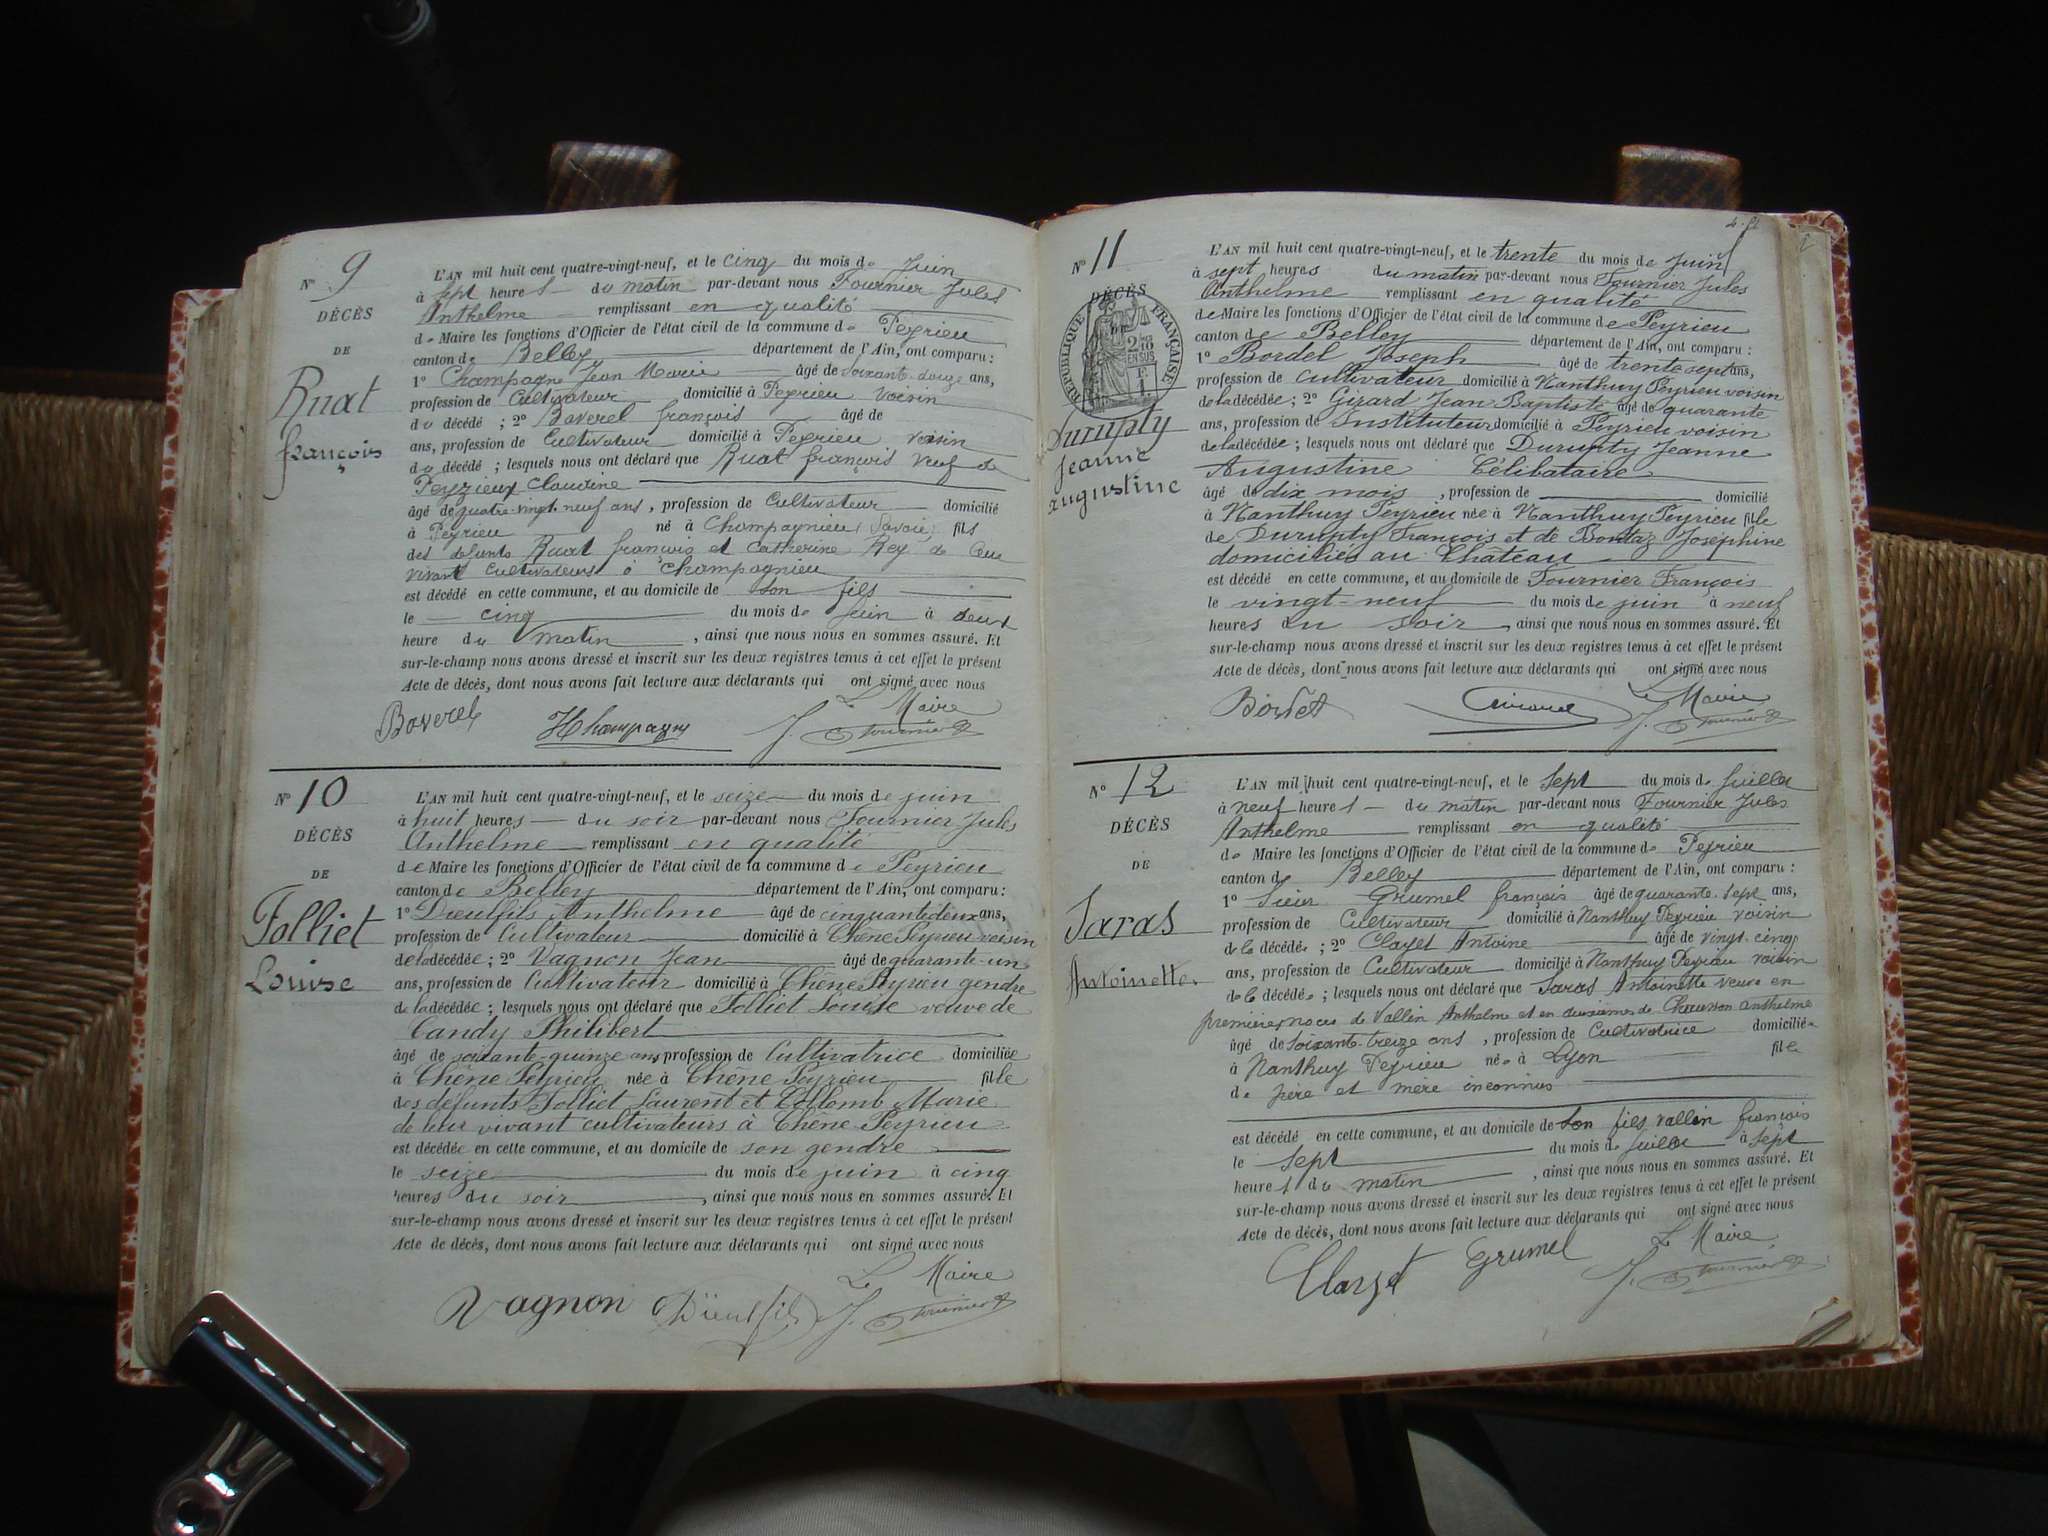 N° 9
DÉCÈS
DE
Ruat
françois
L'AN mil huit cent quatre-vingt-neuf, et le cinq du mois de Juin
à sept heures du matin par-devant nous Fournier Jules
Anthelme remplissant en qualité
de Maire les fonctions d'Officier de l'état civil de la commune de Peyrieu
canton de Belley département de l'Ain, ont comparu :
1° Champagne Jean Marie âgé de soixante-douze ans,
profession de Cultivateur domicilié à Peyrieu voisin
du décédé ; 2° Baverel françois âgé de
ans, profession de Cultivateur domicilié à Peyrieu voisin
du décédé ; lesquels nous ont déclaré que Ruat françois veuf de
Peyzieux Claudine
âgé de quatre-vingt-neuf ans, profession de Cultivateur domicilié
à Peyrieu né à Champagnieu (Savoie) fils
des défunts Ruat françois et Catherine Rey de leur
vivant Cultivateurs à Champagnieu
est décédé en cette commune, et au domicile de son fils
le cinq du mois de Juin à deux
heure du matin, ainsi que nous nous en sommes assuré. Et
sur-le-champ nous avons dressé et inscrit sur les deux registres tenus à cet effet le présent
Acte de décès, dont nous avons fait lecture aux déclarants qui ont signé avec nous
Le Maire
Baverel Champagne J. Fournier
N° 10
DÉCÈS
DE
Folliet
Louise
L'AN mil huit cent quatre-vingt-neuf, et le seize du mois de juin
à huit heures du soir par-devant nous Fournier Jules
Anthelme remplissant en qualité
de Maire les fonctions d'Officier de l'état civil de la commune de Peyrieu
canton de Belley département de l'Ain, ont comparu :
1° Dieulfils Anthelme âgé de cinquante deux ans,
profession de Cultivateur domicilié à Chêne Peyrieu voisin
de la décédée ; 2° Vagnon Jean âgé de quarante-un
ans, profession de Cultivateur domicilié à Chêne Peyrieu gendre
de la décédée ; lesquels nous ont déclaré que Folliet Louise veuve de
Candy Philibert
âgé de soixante-quinze ans profession de Cultivatrice domiciliée
à Chêne Peyrieu née à Chêne Peyrieu fille
des défunts Folliet Laurent et Collomb Marie
de leur vivant cultivateurs à Chêne Peyrieu
est décédée en cette commune, et au domicile de son gendre
le seize du mois de juin à cinq
heures du soir, ainsi que nous nous en sommes assuré. Et
sur-le-champ nous avons dressé et inscrit sur les deux registres tenus à cet effet le présent
Acte de décès, dont nous avons fait lecture aux déclarants qui ont signé avec nous
Le Maire
Vagnon Dieulfils J. Fournier
N° 11
DÉCÈS
DE
RÉPUBLIQUE FRANÇAISE
2 10
EN SUS
Durupty
Jeanne
Augustine
L'AN mil huit cent quatre-vingt-neuf, et le trente du mois de juin
à sept heures du matin par-devant nous Fournier Jules
Anthelme remplissant en qualité
de Maire les fonctions d'Officier de l'état civil de la commune de Peyrieu
canton de Belley département de l'Ain, ont comparu :
1° Bordel Joseph âgé de trente sept ans,
profession de cultivateur domicilié à Nanthuy Peyrieu voisin
de la décédée ; 2° Girard Jean-Baptiste âgé de quarante
ans, profession de Instituteur domicilié à Peyrieu voisin
de la décédée ; lesquels nous ont déclaré que Durupty Jeanne
Augustine Célibataire
âgé de dix mois, profession de domicilié
à Nanthuy Peyrieu née à Nanthuy Peyrieu fille
de Durupty François et de Bontaz Joséphine
domiciliés au Château
est décédé en cette commune, et au domicile de Fournier François
le vingt-neuf du mois de juin à neuf
heures du soir, ainsi que nous nous en sommes assuré. Et
sur-le-champ nous avons dressé et inscrit sur les deux registres tenus à cet effet le présent
Acte de décès, dont nous avons fait lecture aux déclarants qui ont signé avec nous
Le Maire
Bordel Girard J. Fournier
N° 12
DÉCÈS
DE
Saras
Antoinette
L'AN mil huit cent quatre-vingt-neuf, et le sept du mois de Juillet
à neuf heures du matin par-devant nous Fournier Jules
Anthelme remplissant en qualité
de Maire les fonctions d'Officier de l'état civil de la commune de Peyrieu
canton de Belley département de l'Ain, ont comparu :
1° Sieur Grumel françois âgé de quarante-sept ans,
profession de Cultivateur domicilié à Nanthuy Peyrieu voisin
de la décédée ; 2° Clayet Antoine âgé de vingt-cinq
ans, profession de Cultivateur domicilié à Nanthuy Peyrieu voisin
de la décédée ; lesquels nous ont déclaré que Saras Antoinette veuve en
premières noces de Vallin Anthelme et en deuxièmes de Chausson anthelme
âgé de soixante-treize ans, profession de Cultivatrice domiciliée
à Nanthuy Peyrieu née à Lyon fille
de père et mère inconnus
est décédé en cette commune, et au domicile de son fils vallin françois
le sept du mois de Juillet à sept
heures du matin, ainsi que nous nous en sommes assuré. Et
sur-le-champ nous avons dressé et inscrit sur les deux registres tenus à cet effet le présent
Acte de décès, dont nous avons fait lecture aux déclarants qui ont signé avec nous
Le Maire
Clayet Grumel J. Fournier